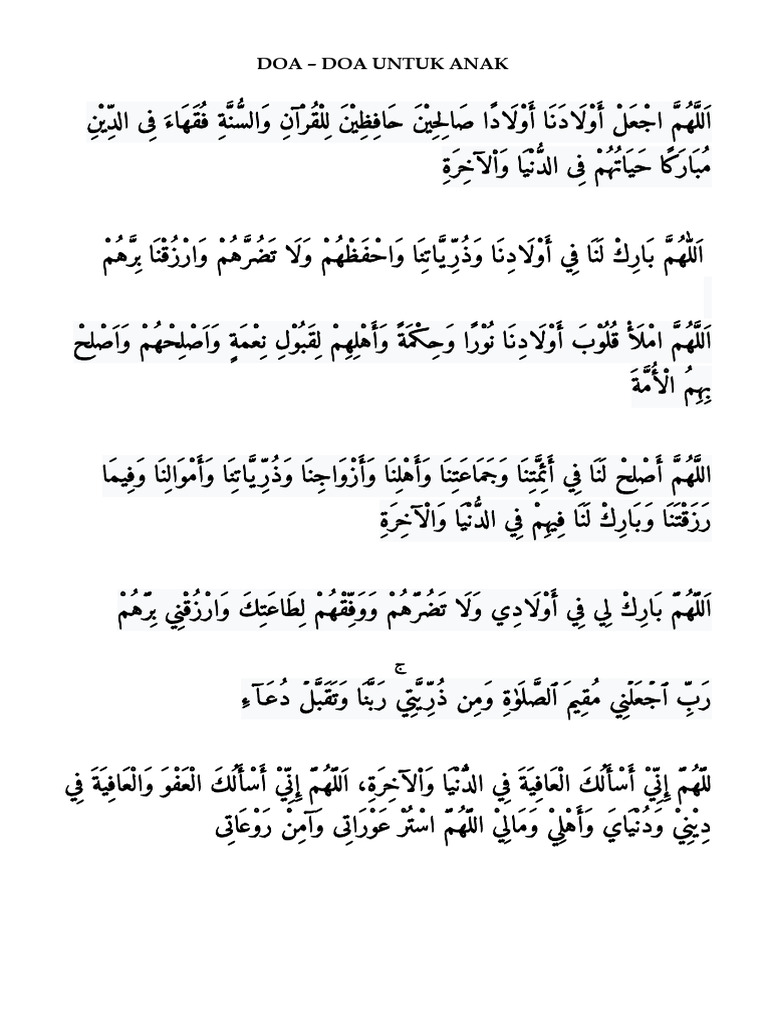 DOA – DOA UNTUK ANAK
اَللَّهُمَّ اجْعَلْ أَوْلَادَنَا أَوْلَادًا صَالِحِيْنَ حَافِظِيْنَ لِلْقُرْآنِ وَالسُّنَّةِ فُقَهَاءَ فِى الدِّيْنِ
مُبَارَكًا حَيَاتُهُمْ فِى الدُّنْيَا وَاْلآخِرَةِ
اَللّٰهُمَّ بَارِكْ لَنَا فِي أَوْلَادِنَا وَذُرِّيَّاتِنَا وَاحْفَظْهُمْ وَلَا تَضُرَّهُمْ وَارْزُقْنَا بِرَّهُمْ
اَللَّهُمَّ امْلَأْ قُلُوْبَ أَوْلَادِنَا نُوْرًا وَحِكْمَةً وَأَهْلِهِمْ لِقَبُوْلِ نِعْمَةٍ وَاَصْلِحْهُمْ وَاَصْلِحْ
بِهِمُ الْأُمَّةَ
اللَّهُمَّ أَصْلِحْ لَنَا فِي أَئِمَّتِنَا وَجَمَاعَتِنَا وَأَهْلِنَا وَأَزْوَاجِنَا وَذُرِّيَّاتِنَا وَأَمْوَالِنَا وَفِيمَا
رَزَقْتَنَا وَبَارِكْ لَنَا فِيهِمْ فِي الدُّنْيَا وَالْآخِرَةِ
اَللّهُمّ بَارِكْ لِي فِي أَوْلَادِي وَلَا تَضُرّهُمْ وَوَفِّقْهُمْ لِطَاعَتِكَ وَارْزُقْنِي بِرّهُمْ
رَبِّ ٱجْعَلْنِي مُقِيمَ ٱلصَّلَوٰةِ وَمِن ذُرِّيَّتِي ۚ رَبَّنَا وَتَقَبَّلْ دُعَآءِ
للّهُمّ إِنِّيْ أَسْأَلُكَ الْعَافِيَةَ فِي الدُّنْيَا وَاْلآخِرَةِ، اَللّهُمّ إِنِّيْ أَسْأَلُكَ الْعَفْوَ وَالْعَافِيَةَ فِي
دِيْنِيْ وَدُنْيَايَ وَأَهْلِيْ وَمَالِيْ اللّهُمّ اسْتُرْ عَوْرَاتِى وَآمِنْ رَوْعَاتِى